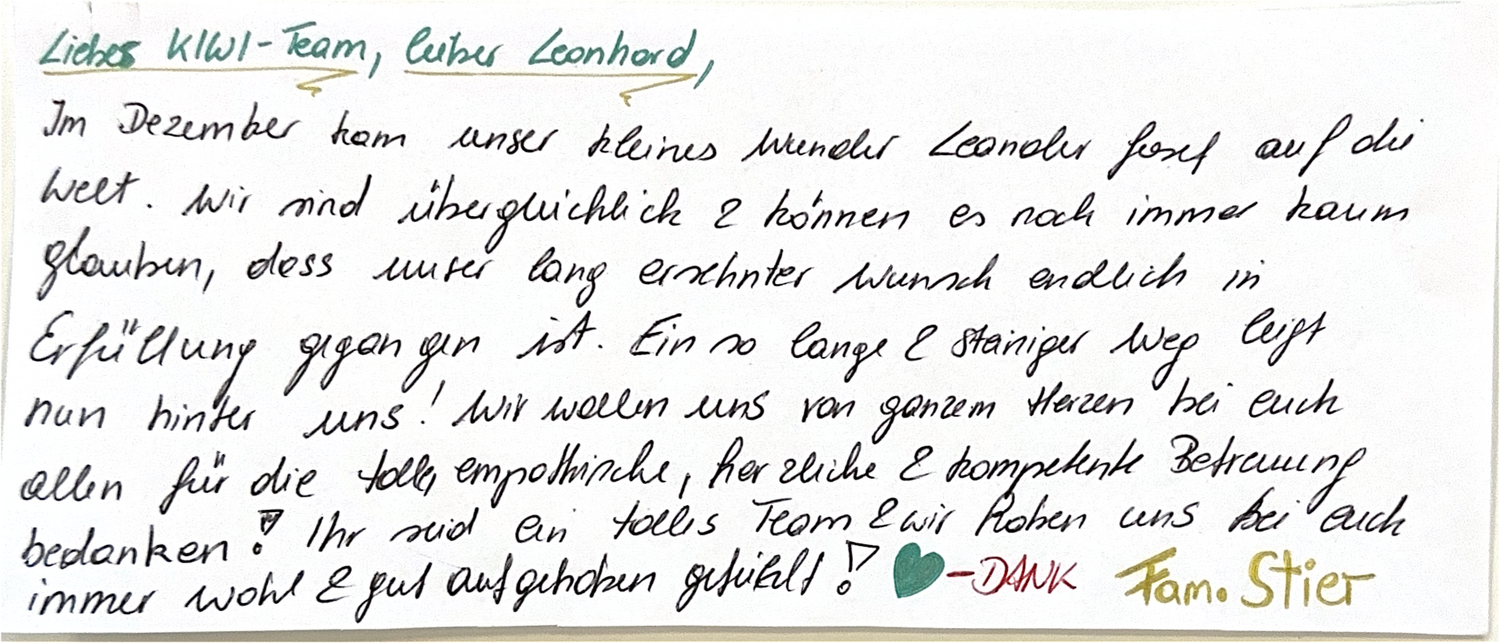 Liebes KIWI-Team, lieber Leonhard,
Im Dezember kam unser kleines Wunder Leander Josef auf die
Welt. Wir sind überglücklich & können es noch immer kaum
glauben, dass unser lang ersehnter Wunsch endlich in
Erfüllung gegangen ist. Ein so lange & steiniger Weg leigt
nun hinter uns! Wir wollen uns von ganzem Herzen bei euch
allen für die tolle, empathische, herzliche & kompetente Betreuung
bedanken! Ihr seid ein tolles Team & wir haben uns bei euch
immer wohl & gut aufgehoben gefühlt! ♥-DANK Fam. Stier